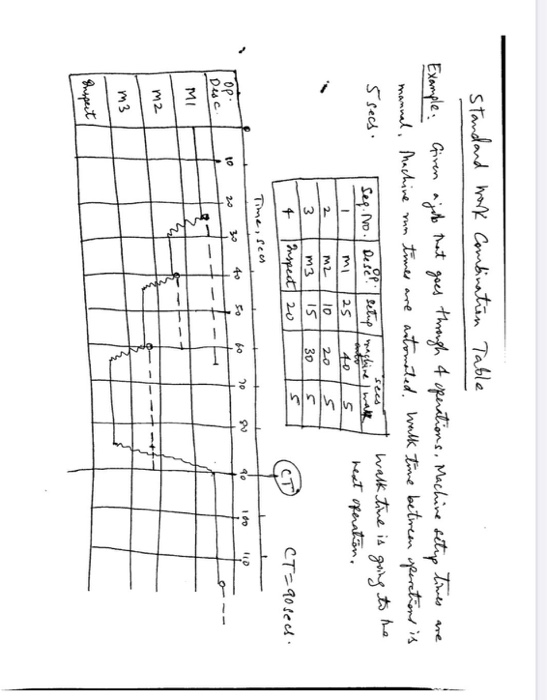 Standard Work Combination Table
Example: Given a job that goes through 4 operations. Machine setup times are
manual. Machine run times are automated. Walk time between operations is
5 secs.
secs
Seq. No. Op. Desc. Setup machine auto walk
1 M1 25 40 5
2 M2 10 20 5
3 M3 15 30 5
4 Inspect 20 5
walk time is going to the
next operation.
CT = 90 secs.
CT
Time, secs
Op. Desc. 10 20 30 40 50 60 70 80 90 100 110
M1
M2
M3
Inspect